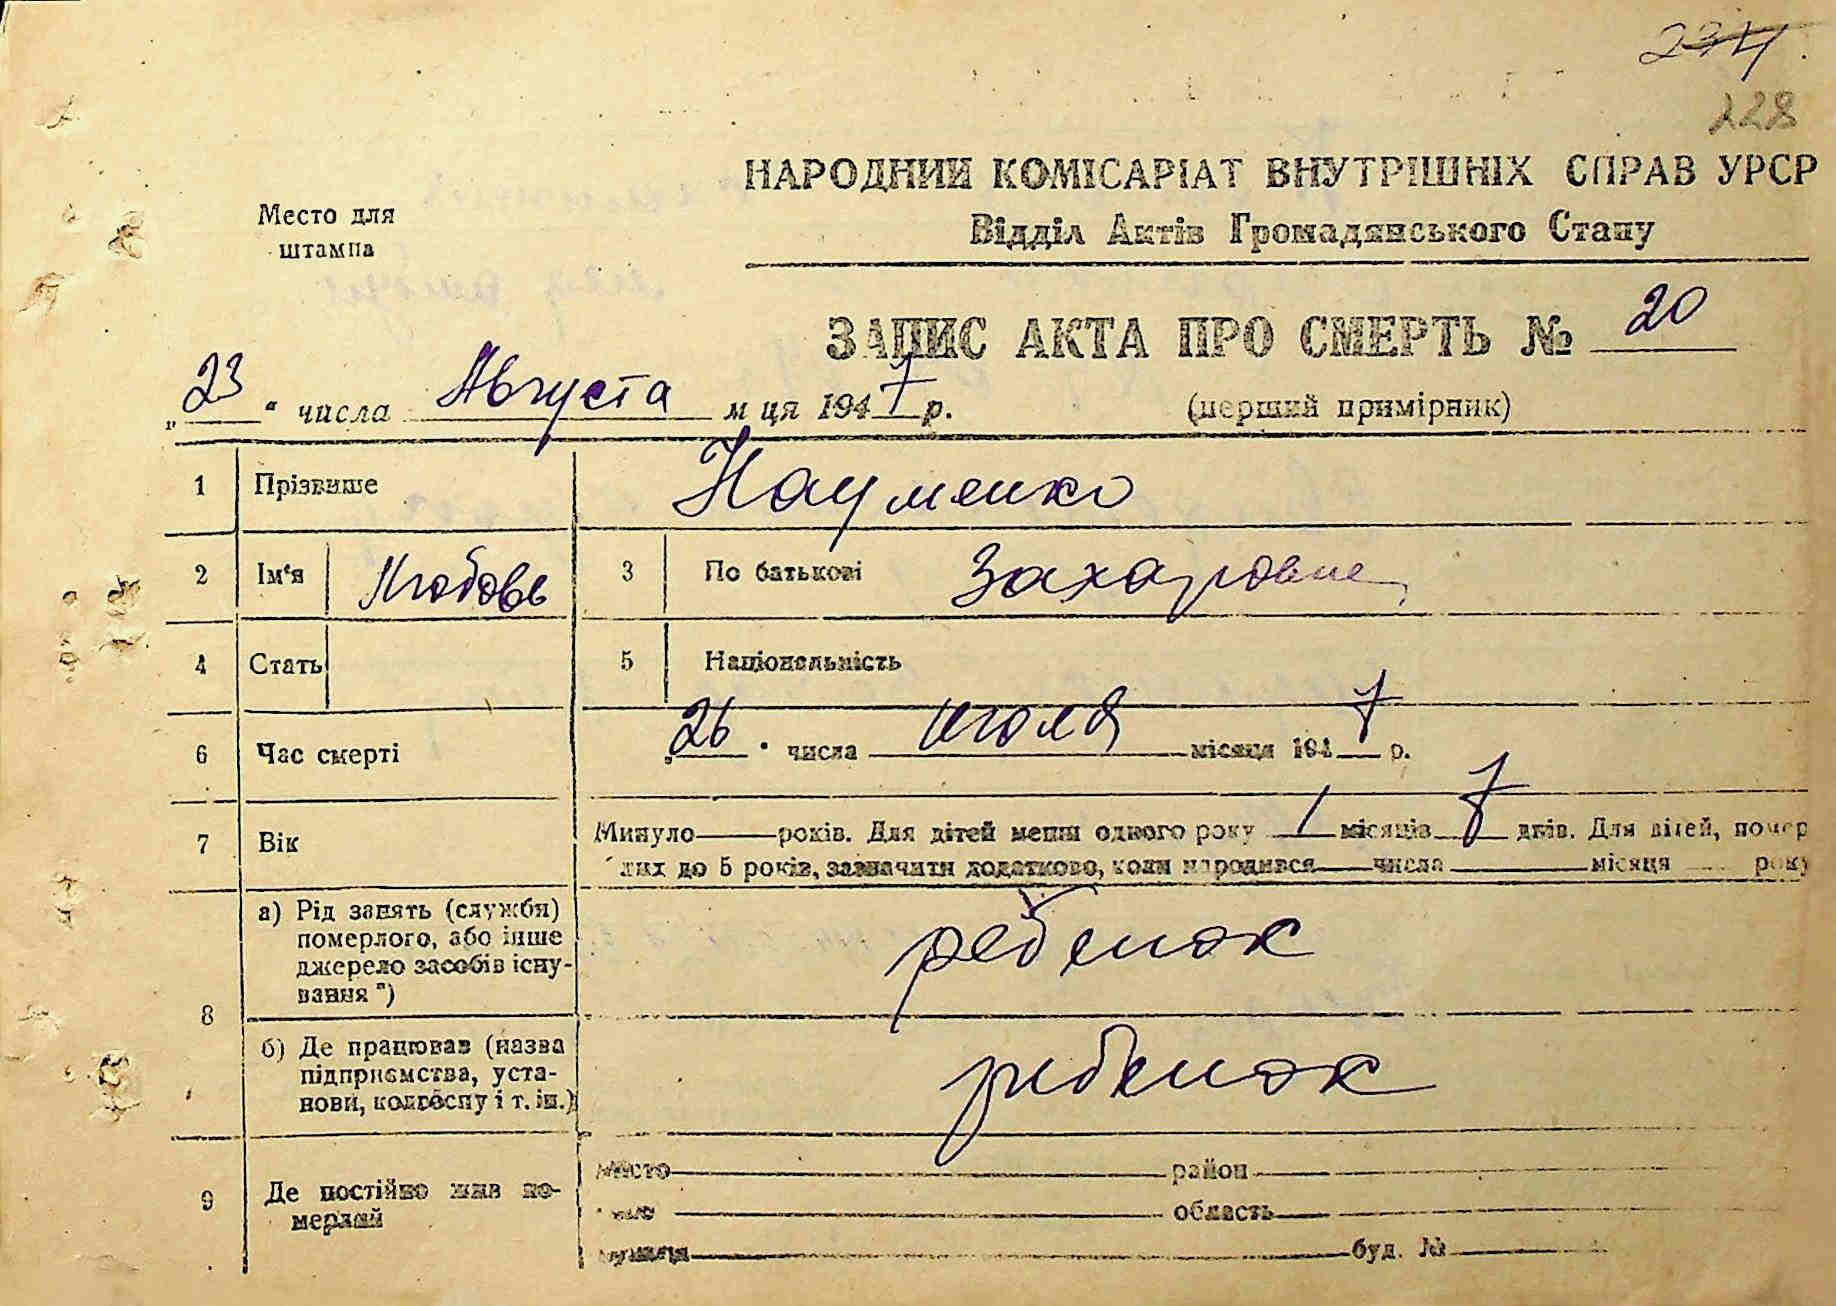 234.
228
НАРОДНИЙ КОМІСАРІАТ ВНУТРІШНІХ СПРАВ УРСР
Відділ Актів Громадянського Стану
Место для
штампа
ЗАПИС АКТА ПРО СМЕРТЬ № 20
„23“ числа Августа м ця 1947 р.
(перший примірник)
1 Прізвище Науменко
2 Ім‘я Любовь 3 По батькові Захаровна
4 Стать 5 Національність
6 Час смерті „26" числа июля місяця 1947 р.
7 Вік Минуло ― років. Для дітей менш одного року 1 місяців 7 днів. Для дітей, помер
лих до 5 років, зазначити додатково, коли народився ― числа ― місяця ― року
8 а) Рід занять (служби)
померлого, або інше
джерело засобів існу-
вання *)
ребенок
б) Де працював (назва
підприємства, уста-
нови, колгоспу і т. ін.)
ребенок
9 Де постійно жив по-
мерлий
місто район
село область
вулиця буд. №